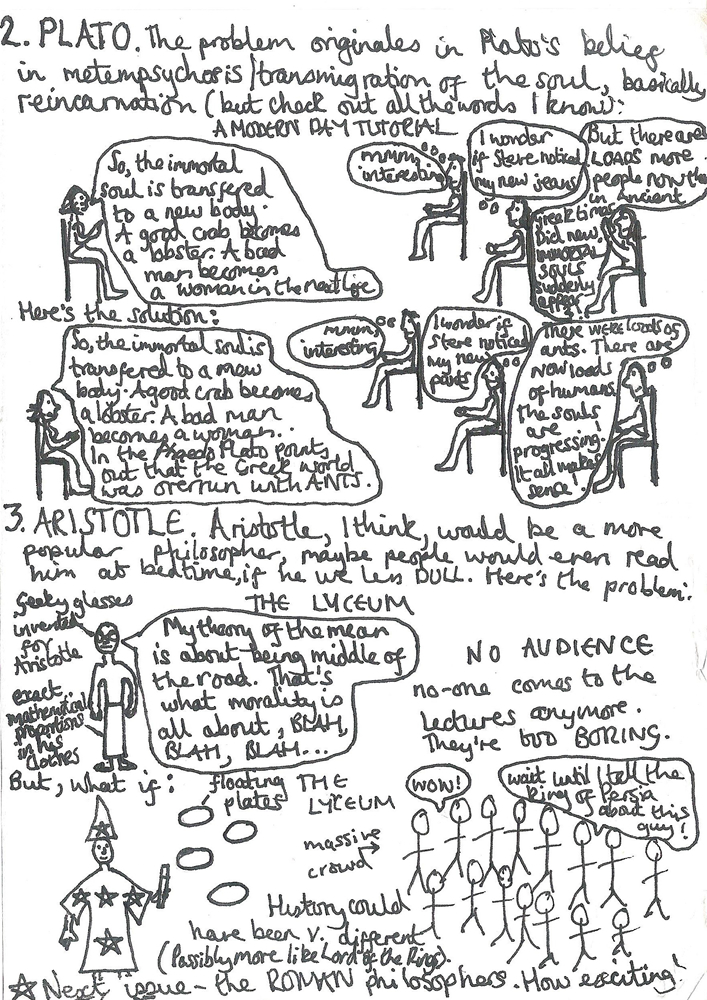 2. PLATO. The problem originates in Plato's belief
in metempsychosis/transmigration of the soul, basically
reincarnation (but check out all the words I know):
A MODERN DAY TUTORIAL
So, the immortal
soul is transfered
to a new body.
A good crab becomes
a lobster. A bad
man becomes
a woman in the next life
mmm,
interesting
I wonder
if Steve noticed
my new jeans
But there are
LOADS more
people now than
in Ancient
Greek times.
Did new
immortal
souls
suddenly
appear?
Here's the solution:
So, the immortal soul is
transfered to a new
body. A good crab becomes
a lobster. A bad man
becomes a woman..
In the Phaedo Plato points
out that the Greek world
was overrun with ANTS.
mmm,
interesting
I wonder if
Steve noticed
my new
pants
There were loads of
ants. There are
now loads
of humans.
the souls
are
progressing!
It all makes
sence!
3. ARISTOTLE. Aristotle, I think, would be a more
popular philosopher, maybe people would even read
him at bedtime, if he we less DULL. Here's the problem:
THE LYCEUM
Geeky glasses
invented
for
Aristotle
exact
mathematical
proportions
in his
clothes
My theory of the mean
is about being middle of
the road. That's
what morality is
all about, BLAH,
BLAH, BLAH...
NO AUDIENCE
no-one comes to the
lectures anymore.
They're too BORING.
But, what if:
floating
plates
THE
LYCEUM
massive
crowd
WOW!
wait until I tell the
King of Persia
about this
guy!
History could
have been v. different
(Possibly more like Lord of the Rings).
Next issue - the ROMAN philosophers. How exciting!